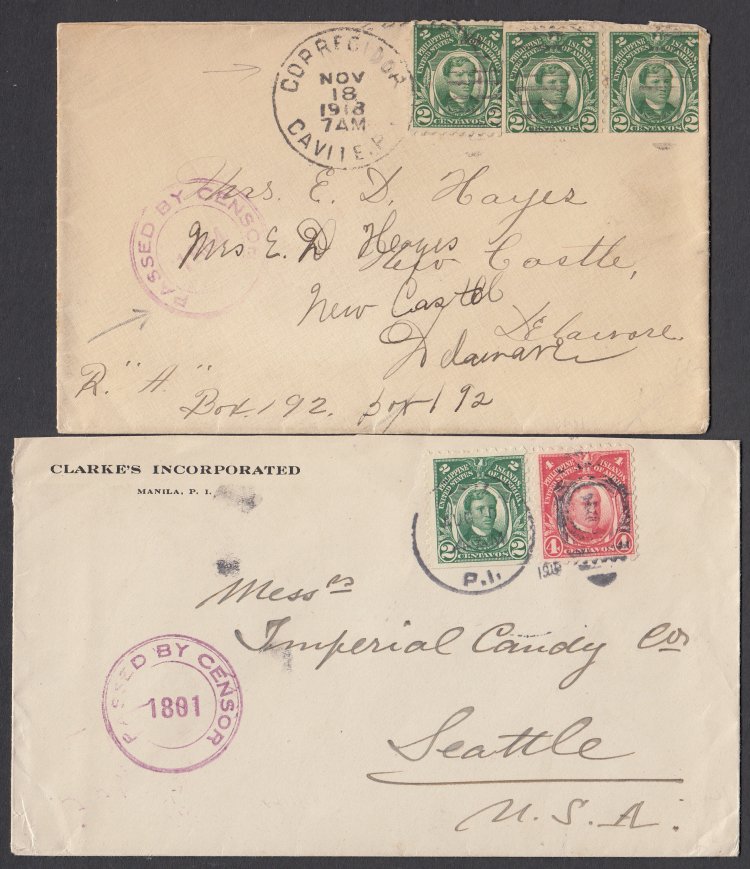 CORREGIDOR
NOV
18
1918
7AM
CAVITE. P.
2 PHILIPPINE ISLANDS 2
UNITED STATES OF AMERICA
2 CENTAVOS 2
2 PHILIPPINE ISLANDS 2
UNITED STATES OF AMERICA
2 CENTAVOS 2
2 PHILIPPINE ISLANDS 2
UNITED STATES OF AMERICA
2 CENTAVOS 2
PASSED BY CENSOR
Mrs. E. D. Hayes
Mrs E. D Hayes
New Castle,
New Castel
Delaware.
Delaware
R. "A"
Box. 192. box 192
CLARKE'S INCORPORATED
MANILA, P. I.
2 PHILIPPINE ISLANDS 2
UNITED STATES OF AMERICA
2 CENTAVOS 2
4 PHILIPPINE ISLANDS 4
UNITED STATES OF AMERICA
4 CENTAVOS 4
P.I.
Messrs
Imperial Candy Co.
Seattle
U.S.A.
PASSED BY CENSOR
1801